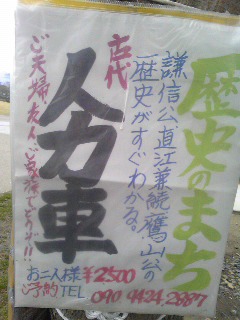 歴史のまち
謙信公直江兼続鷹山公の
歴史がすぐわかる。
古代
人力車
ご夫婦友人ご家族でどうぞ!!
お二人様¥2500
ご予約TEL 090 9424.2887